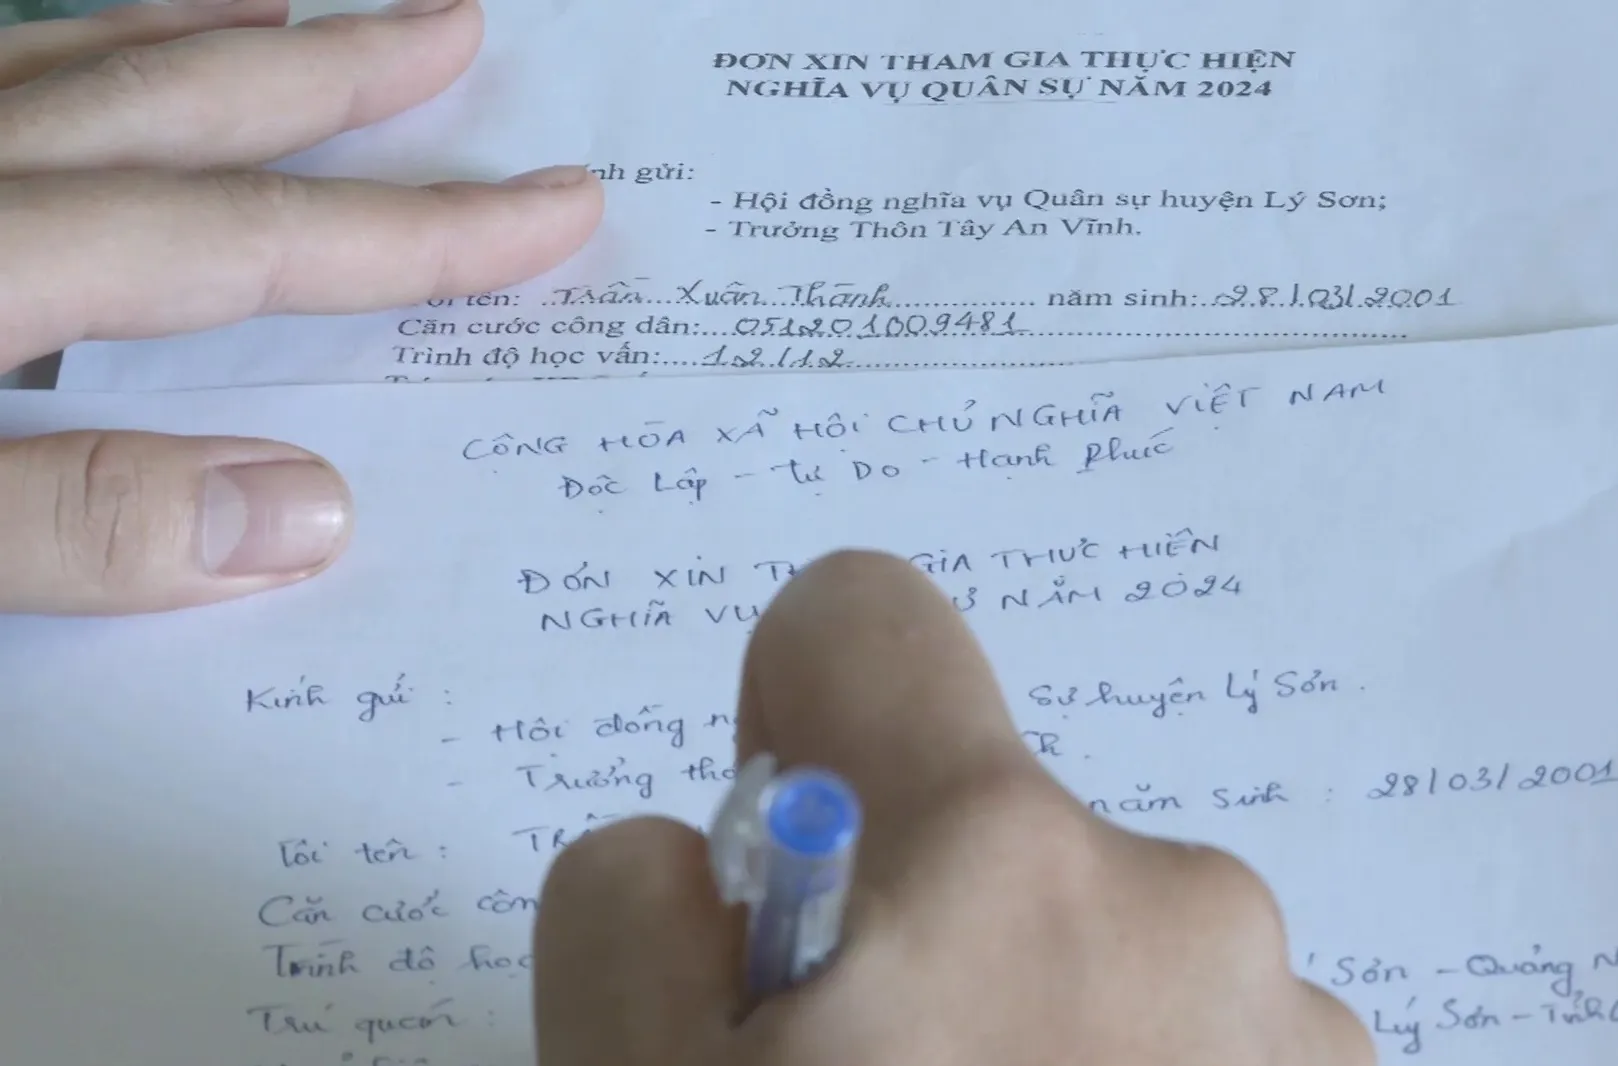 ĐƠN XIN THAM GIA THỰC HIỆN
NGHĨA VỤ QUÂN SỰ NĂM 2024
gửi:
- Hội đồng nghĩa vụ Quân sự huyện Lý Sơn;
- Trưởng Thôn Tây An Vĩnh.
tên: Trần Xuân Thành năm sinh: 28/03/2001
Căn cước công dân: 051201009481
Trình độ học vấn: 12/12
CỘNG HÒA XÃ HỘI CHỦ NGHĨA VIỆT NAM
Độc Lập - Tự Do - Hạnh Phúc
ĐƠN XIN GIA THỰC HIỆN
NGHĨA VỤ NĂM 2024
Kính gửi :
- Hội đồng Sự huyện Lý Sơn.
- Trưởng
Tôi tên : năm sinh : 28/03/2001
Căn cước
Trình độ học Sơn - Quảng
Trú quán : Lý Sơn - Tỉnh